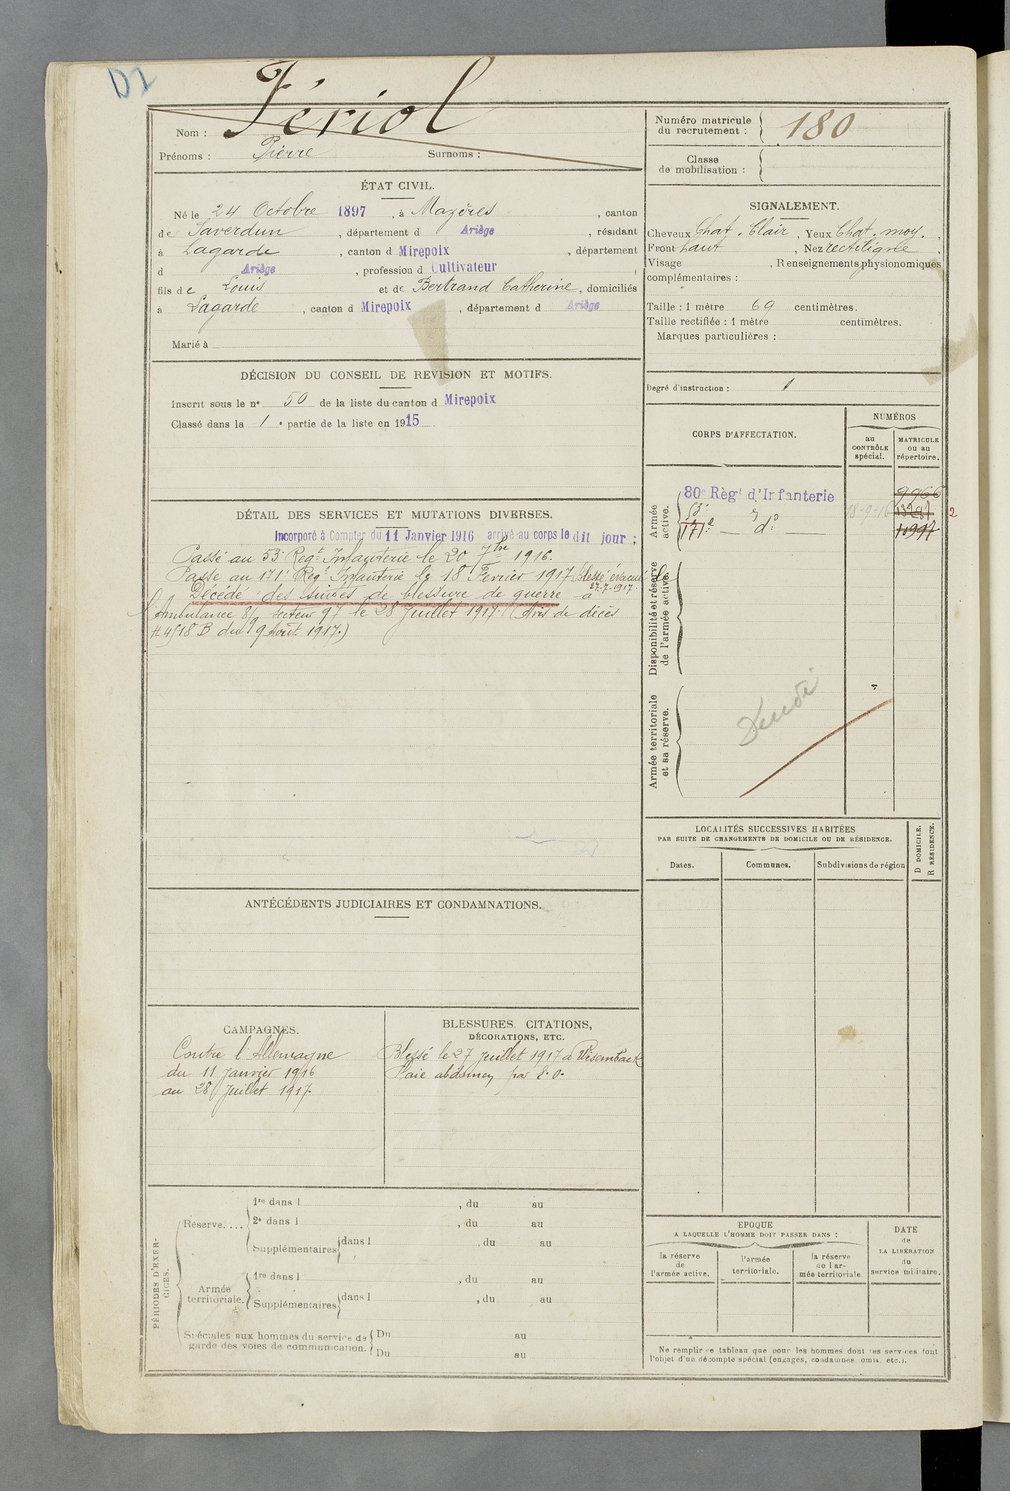 D2
Nom : Fériol
Prénoms : Pierre Surnoms :
Numéro matricule du recrutement : 180
Classe de mobilisation :
ÉTAT CIVIL.
Né le 24 Octobre 1897, à Mazères, canton
de Saverdun, département d Ariège, résidant
à Lagarde, canton d Mirepoix, département
d Ariège, profession d Cultivateur
fils de Louis et de Bertrand Catherine, domiciliés
à Lagarde, canton d Mirepoix, département d Ariège
Marié à
SIGNALEMENT.
Cheveux Chat. Clair, Yeux Chat. moy.,
Front haut, Nez rectiligne
Visage , Renseignements physionomiques
complémentaires :
Taille : 1 mètre 69 centimètres.
Taille rectifiée : 1 mètre centimètres.
Marques particulières :
Degré d'instruction : 1
DÉCISION DU CONSEIL DE REVISION ET MOTIFS.
Inscrit sous le n° 50 de la liste du canton d Mirepoix
Classé dans la 1e partie de la liste en 1915
CORPS D'AFFECTATION.
NUMÉROS
au CONTRÔLE spécial.
MATRICULE ou au répertoire.
Armée active.
80e Régt d'Infanterie 9966
53e
171e — d° — 11997
2
Disponibilité et réserve de l'armée active.
Armée territoriale et sa réserve.
DÉTAIL DES SERVICES ET MUTATIONS DIVERSES.
Incorporé à Compter du 11 Janvier 1916 arrivé au corps le dit jour ;
Passé au 53e Régt Infanterie le 20 7bre 1916.
Passé au 171e Régt Infanterie le 18 Février 1917 blessé évacué le
27-7-1917
Décédé des suites de blessure de guerre à
l'Ambulance 8/9 secteur 97 le 28 Juillet 1917 (Avis de décès
du 19 Août 1917.)
LOCALITÉS SUCCESSIVES HABITÉES
PAR SUITE DE CHANGEMENTS DE DOMICILE OU DE RÉSIDENCE.
Dates. Communes. Subdivisions de région
D DOMICILE.
R RÉSIDENCE.
ANTÉCÉDENTS JUDICIAIRES ET CONDAMNATIONS.
CAMPAGNES.
Contre l'Allemagne
du 11 janvier 1916
au 28 Juillet 1917
BLESSURES, CITATIONS,
DÉCORATIONS, ETC.
Blessé le 27 juillet 1917 à Wisembach
Plaie abdomen par E.O.
PÉRIODES D'EXERCICES.
Réserve....
1re dans l , du au
2e dans l , du au
Supplémentaires dans l , du au
Armée territoriale.
1re dans l , du au
Supplémentaires dans l , du au
Spéciales aux hommes du service de
garde des voies de communication.
Du au
Du au
EPOQUE
A LAQUELLE L'HOMME DOIT PASSER DANS :
la réserve de l'armée active.
l'armée territoriale.
la réserve de l'armée territoriale.
DATE de LA LIBÉRATION du service militaire.
Ne remplir ce tableau que pour les hommes dont les services font
l'objet d'un décompte spécial (engagés, condamnés, omis, etc.).